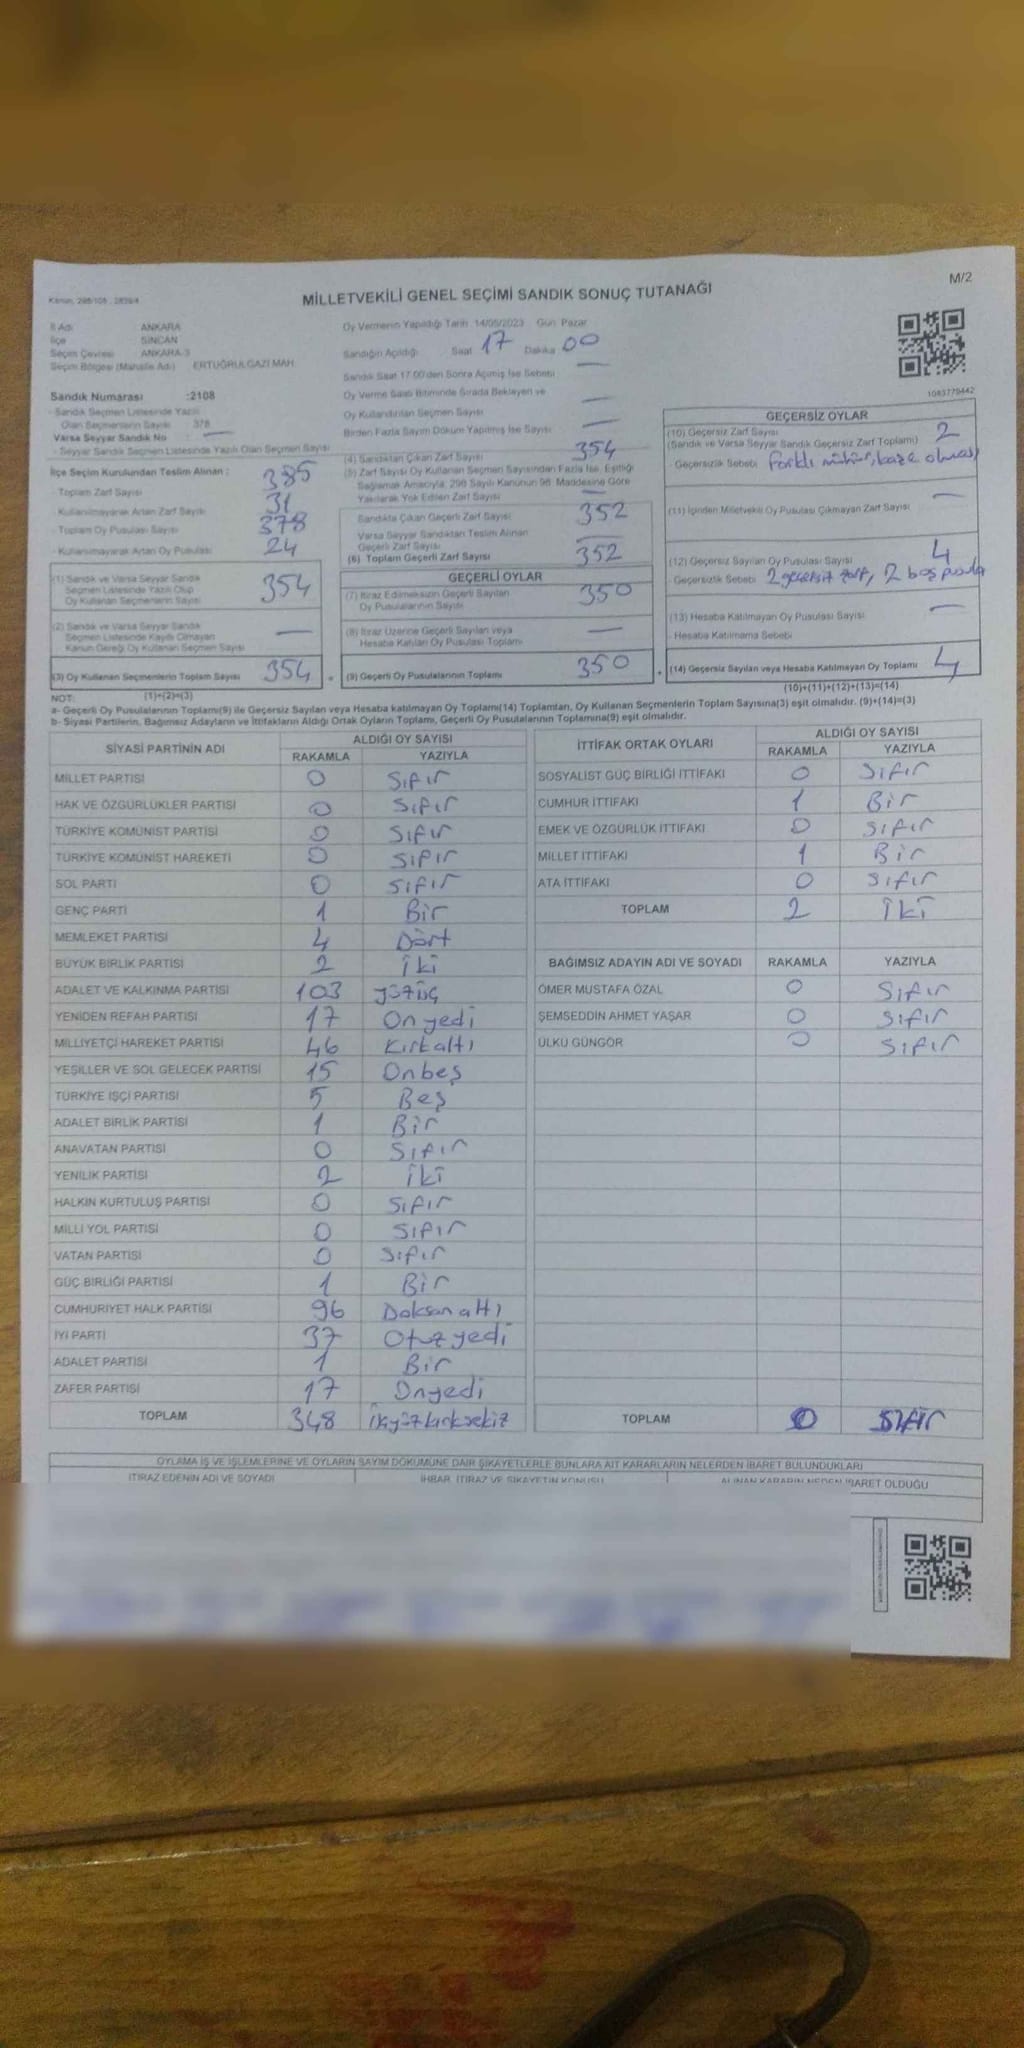 M/2
Kanun: 298/105 , 2839/4
MİLLETVEKİLİ GENEL SEÇİMİ SANDIK SONUÇ TUTANAĞI
İl Adı ANKARA
İlçe SİNCAN
Seçim Çevresi ANKARA-3
Seçim Bölgesi (Mahalle Adı) ERTUĞRULGAZİ MAH.
Sandık Numarası :2108
- Sandık Seçmen Listesinde Yazılı
Olan Seçmenlerin Sayısı 378
Varsa Seyyar Sandık No : —
- Seyyar Sandık Seçmen Listesinde Yazılı Olan Seçmen Sayısı
İlçe Seçim Kurulundan Teslim Alınan :
- Toplam Zarf Sayısı 385
- Kullanılmayarak Artan Zarf Sayısı 31
- Toplam Oy Pusulası Sayısı 378
- Kullanılmayarak Artan Oy Pusulası 24
(1) Sandık ve Varsa Seyyar Sandık
Seçmen Listesinde Yazılı Olup
Oy Kullanan Seçmenlerin Sayısı 354
(2) Sandık ve Varsa Seyyar Sandık
Seçmen Listesinde Kayıtlı Olmayan
Kanun Gereği Oy Kullanan Seçmen Sayısı —
(3) Oy Kullanan Seçmenlerin Toplam Sayısı 354
(1)+(2)=(3)
Oy Vermenin Yapıldığı Tarih :14/05/2023 Gün: Pazar
Sandığın Açıldığı Saat 17 Dakika 00
Sandık Saat 17.00'den Sonra Açılmış İse Sebebi —
Oy Verme Saati Bitiminde Sırada Bekleyen ve
Oy Kullandırılan Seçmen Sayısı —
Birden Fazla Sayım Döküm Yapılmış İse Sayısı —
(4) Sandıktan Çıkan Zarf Sayısı 354
(5) Zarf Sayısı Oy Kullanan Seçmen Sayısından Fazla İse, Eşitliği
Sağlamak Amacıyla, 298 Sayılı Kanunun 98. Maddesine Göre
Yakılarak Yok Edilen Zarf Sayısı —
Sandıkta Çıkan Geçerli Zarf Sayısı 352
Varsa Seyyar Sandıktan Teslim Alınan
Geçerli Zarf Sayısı —
(6) Toplam Geçerli Zarf Sayısı 352
GEÇERLİ OYLAR
(7) İtiraz Edilmeksizin Geçerli Sayılan
Oy Pusulalarının Sayısı 350
(8) İtiraz Üzerine Geçerli Sayılan veya
Hesaba Katılan Oy Pusulası Toplamı —
(9) Geçerli Oy Pusulalarının Toplamı 350
1083770442
GEÇERSİZ OYLAR
(10) Geçersiz Zarf Sayısı
(Sandık ve Varsa Seyyar Sandık Geçersiz Zarf Toplamı) 2
- Geçersizlik Sebebi farklı mühür,
(11) İçinden Milletvekili Oy Pusulası Çıkmayan Zarf Sayısı —
(12) Geçersiz Sayılan Oy Pusulası Sayısı 4
- Geçersizlik Sebebi 2 geçersiz zarf, 2 boş pusula
(13) Hesaba Katılmayan Oy Pusulası Sayısı —
- Hesaba Katılmama Sebebi
(14) Geçersiz Sayılan veya Hesaba Katılmayan Oy Toplamı 4
(10)+(11)+(12)+(13)=(14)
NOT:
a- Geçerli Oy Pusulalarının Toplamı(9) ile Geçersiz Sayılan veya Hesaba katılmayan Oy Toplamı(14) Toplamları, Oy Kullanan Seçmenlerin Toplam Sayısına(3) eşit olmalıdır. (9)+(14)=(3)
b- Siyasi Partilerin, Bağımsız Adayların ve İttifakların Aldığı Ortak Oyların Toplamı, Geçerli Oy Pusulalarının Toplamına(9) eşit olmalıdır.
SİYASİ PARTİNİN ADI ALDIĞI OY SAYISI
RAKAMLA YAZIYLA
MİLLET PARTİSİ 0 Sıfır
HAK VE ÖZGÜRLÜKLER PARTİSİ 0 Sıfır
TÜRKİYE KOMÜNİST PARTİSİ 0 Sıfır
TÜRKİYE KOMÜNİST HAREKETİ 0 Sıfır
SOL PARTİ 0 Sıfır
GENÇ PARTİ 1 Bir
MEMLEKET PARTİSİ 4 Dört
BÜYÜK BİRLİK PARTİSİ 2 İki
ADALET VE KALKINMA PARTİSİ 103 yüzüç
YENİDEN REFAH PARTİSİ 17 Onyedi
MİLLİYETÇİ HAREKET PARTİSİ 46 Kırkaltı
YEŞİLLER VE SOL GELECEK PARTİSİ 15 Onbeş
TÜRKİYE İŞÇİ PARTİSİ 5 Beş
ADALET BİRLİK PARTİSİ 1 Bir
ANAVATAN PARTİSİ 0 Sıfır
YENİLİK PARTİSİ 2 İki
HALKIN KURTULUŞ PARTİSİ 0 Sıfır
MİLLİ YOL PARTİSİ 0 Sıfır
VATAN PARTİSİ 0 Sıfır
GÜÇ BİRLİĞİ PARTİSİ 1 Bir
CUMHURİYET HALK PARTİSİ 96 Doksanaltı
İYİ PARTİ 37 Otuzyedi
ADALET PARTİSİ 1 Bir
ZAFER PARTİSİ 17 Onyedi
TOPLAM 348 Üçyüzkırksekiz
İTTİFAK ORTAK OYLARI ALDIĞI OY SAYISI
RAKAMLA YAZIYLA
SOSYALİST GÜÇ BİRLİĞİ İTTİFAKI 0 Sıfır
CUMHUR İTTİFAKI 1 Bir
EMEK VE ÖZGÜRLÜK İTTİFAKI 0 Sıfır
MİLLET İTTİFAKI 1 Bir
ATA İTTİFAKI 0 Sıfır
TOPLAM 2 İki
BAĞIMSIZ ADAYIN ADI VE SOYADI RAKAMLA YAZIYLA
ÖMER MUSTAFA ÖZAL 0 Sıfır
ŞEMSEDDİN AHMET YAŞAR 0 Sıfır
ÜLKÜ GÜNGÖR 0 Sıfır
TOPLAM 0 SIFIR
OYLAMA İŞ VE İŞLEMLERİNE VE OYLARIN SAYIM DÖKÜMÜNE DAİR ŞİKAYETLERLE BUNLARA AİT KARARLARIN NELERDEN İBARET BULUNDUKLARI
İTİRAZ EDENİN ADI VE SOYADI İHBAR, İTİRAZ VE ŞİKAYETİN KONUSU ALINAN KARARIN NEDEN İBARET OLDUĞU